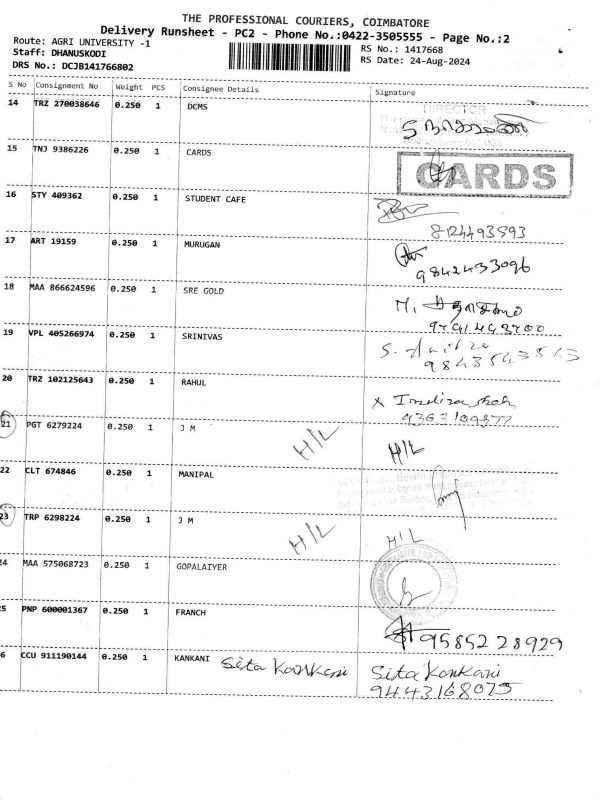 THE PROFESSIONAL COURIERS, COIMBATORE
Delivery Runsheet - PC2 - Phone No.:0422-3505555 - Page No.:2
Route: AGRI UNIVERSITY -1 RS No.: 1417668
Staff: DHANUSKODI RS Date: 24-Aug-2024
DRS No.: DCJB141766802
S No Consignment No Weight PCS Consignee Details Signature
14 TRZ 270038646 0.250 1 DCMS
DIRECTOR
15 TNJ 9386226 0.250 1 CARDS
CARDS
16 STY 409362 0.250 1 STUDENT CAFE
8124493593
17 ART 19159 0.250 1 MURUGAN
9842433096
18 MAA 866624596 0.250 1 SRE GOLD
M.
19 VPL 405266974 0.250 1 SRINIVAS
S.
9843543513
20 TRZ 102125643 0.250 1 RAHUL
21 PGT 6279224 0.250 1 J M H/L H/L
22 CLT 674846 0.250 1 MANIPAL
23 TRP 6298224 0.250 1 J M H/L H/L
24 MAA 575068723 0.250 1 GOPALAIYER
25 PNP 600001367 0.250 1 FRANCH
9585228929
26 CCU 911190144 0.250 1 KANKANI Sita Kankani Sita Kankani
9443168075